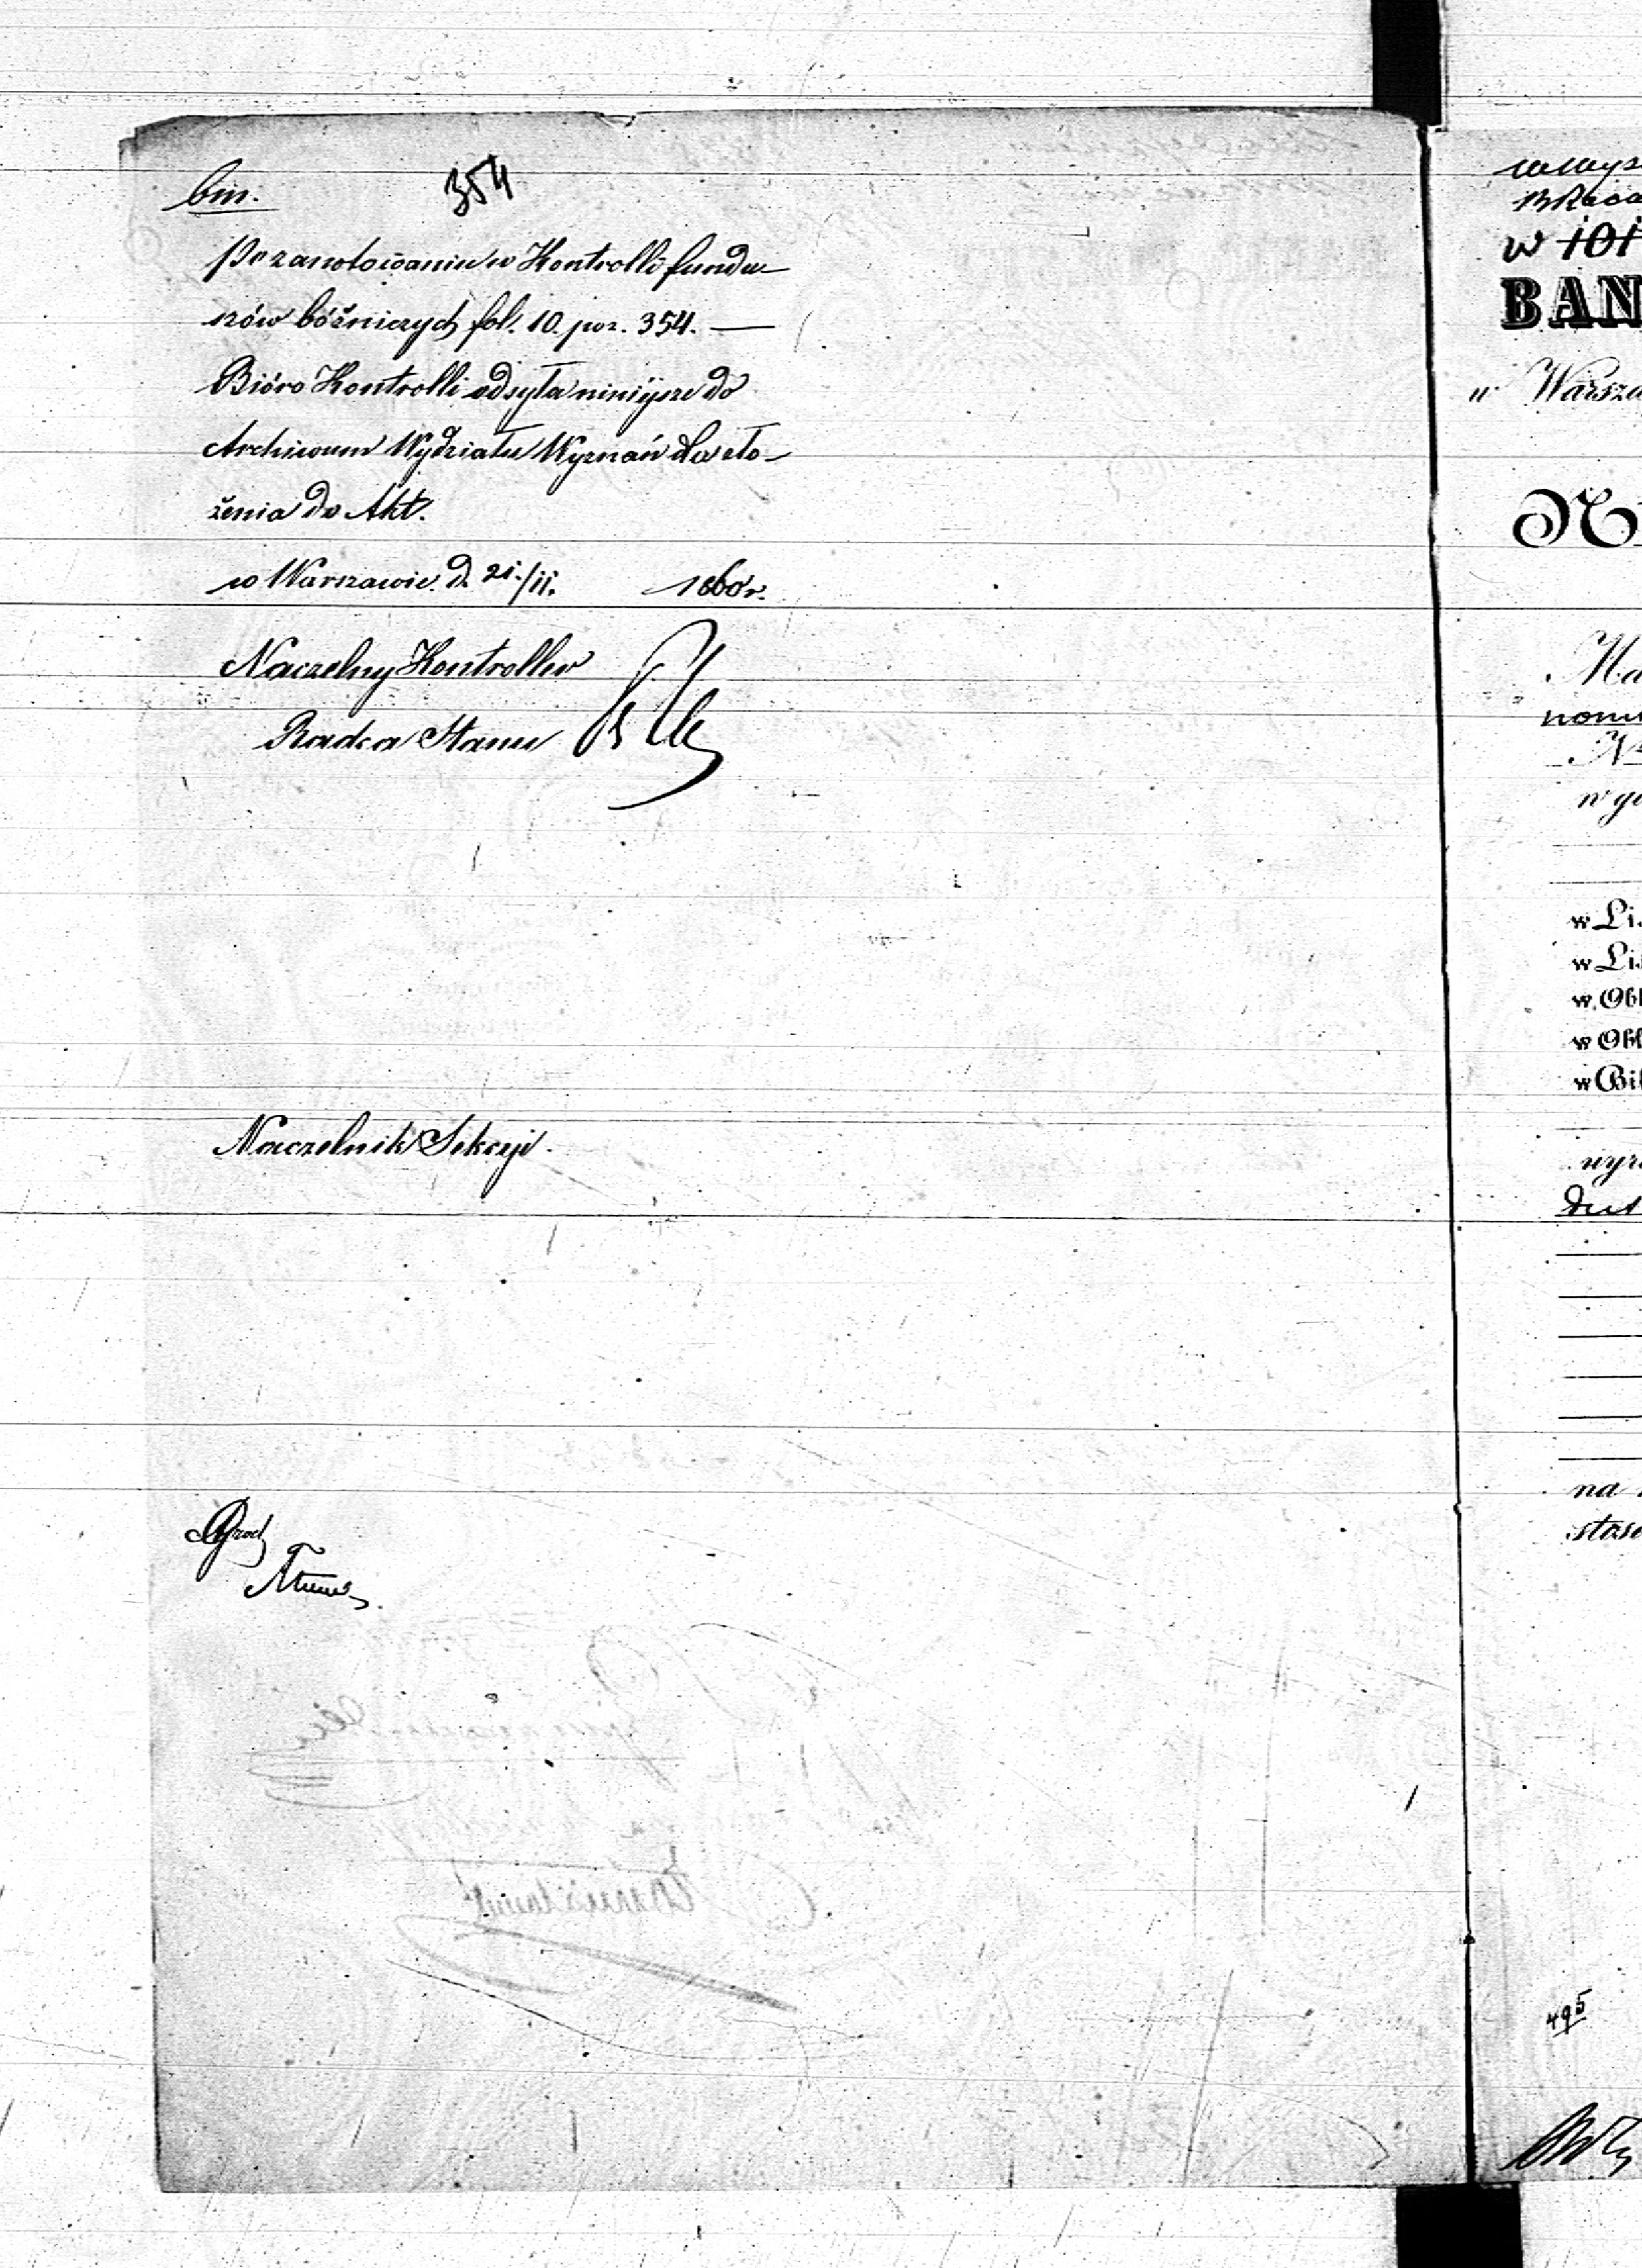 bm.
354
Po zanotowaniu w Kontrolli fundu-
szów bóżniczych fol. 10. poz. 354. —
Bióro Kontrolli odsyła niniejsze do
Archiwum Wydziału Wyznań dla zło-
żenia do Akt.
w Warszawie d. 21./11. 1860 r.
Naczelny Kontroller
Radca Stanu
Naczelnik Sekcyi.
w 101
BAN
w Warsza
Ma
nomi
w Li
w Lis
w Obl
w Obl
w Bil
na
stos
495